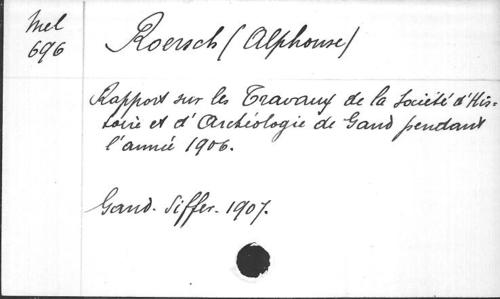 Mel
696
Roersch (Alphonse)
Rapport sur les Travaux de la Société d'His-
toire et d'Archéologie de Gand pendant
l'année 1906.
Gand. Siffer. 1907.